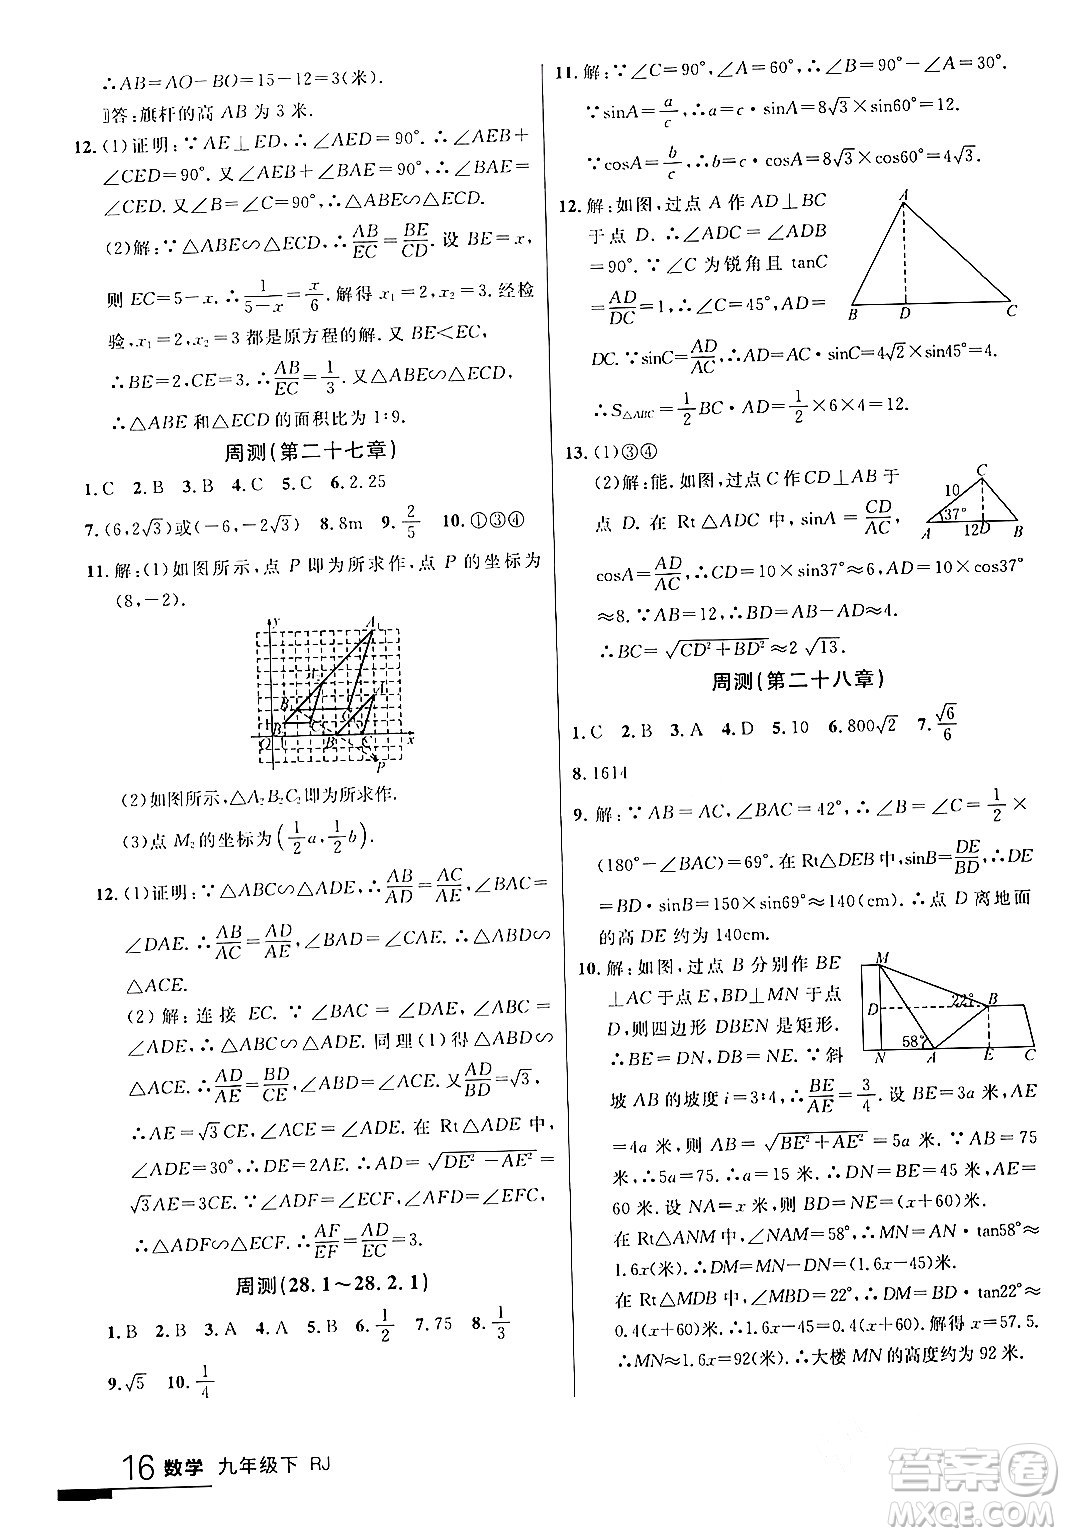 ∴AB=AO-BO=15-12=3(米).
答:旗杆的高 AB 为 3 米.
12.(1)证明:∵AE⊥ED,∴∠AED=90°.∴∠AEB+
∠CED=90°.又∠AEB+∠BAE=90°,∴∠BAE=
∠CED.又∠B=∠C=90°,∴△ABE∽△ECD.
(2)解:∵△ABE∽△ECD,∴AB/EC=BE/CD.设 BE=x,
则 EC=5-x.∴1/(5-x)=x/6.解得x₁=2,x₂=3.经检
验,x₁=2,x₂=3 都是原方程的解.又 BE<EC,
∴BE=2,CE=3.∴AB/EC=1/3.又△ABE∽△ECD,
∴△ABE 和△ECD 的面积比为 1∶9.
周测(第二十七章)
1.C 2.B 3.B 4.C 5.C 6.2.25
7.(6,2√3)或(-6,-2√3) 8.8m 9.2/5 10.①③④
11.解:(1)如图所示,点 P 即为所求作,点 P 的坐标为
(8,-2).
y
O 1 x
P
(2)如图所示,△A₂B₂C₂即为所求作.
(3)点 M₂的坐标为(1/2a,1/2b).
12.(1)证明:∵△ABC∽△ADE,∴AB/AD=AC/AE,∠BAC=
∠DAE.∴AB/AC=AD/AE,∠BAD=∠CAE.∴△ABD∽
△ACE.
(2)解:连接 EC.∵∠BAC=∠DAE,∠ABC=
∠ADE,∴△ABC∽△ADE.同理(1)得△ABD∽
△ACE.∴AD/AE=BD/CE,∠ABD=∠ACE.又AD/BD=√3,
∴AE=√3CE,∠ACE=∠ADE.在 Rt△ADE 中,
∠ADE=30°,∴DE=2AE.∴AD=√(DE²-AE²)=
√3AE=3CE.∵∠ADF=∠ECF,∠AFD=∠EFC,
∴△ADF∽△ECF.∴AF/EF=AD/EC=3.
周测(28.1～28.2.1)
1.B 2.B 3.A 4.A 5.B 6.1/2 7.75 8.1/3
9.√5 10.1/4
11.解:∵∠C=90°,∠A=60°,∴∠B=90°-∠A=30°.
∵sinA=a/c,∴a=c·sinA=8√3×sin60°=12.
∵cosA=b/c,∴b=c·cosA=8√3×cos60°=4√3.
12.解:如图,过点 A 作 AD⊥BC
于点 D.∴∠ADC=∠ADB
=90°.∵∠C 为锐角且 tanC
=AD/DC=1,∴∠C=45°,AD=
DC.∵sinC=AD/AC,∴AD=AC·sinC=4√2×sin45°=4.
∴S△ABC=1/2BC·AD=1/2×6×4=12.
A
B D C
13.(1)③④
(2)解:能.如图,过点 C 作 CD⊥AB 于
点 D.在 Rt△ADC 中,sinA=CD/AC,
cosA=AD/AC,∴CD=10×sin37°≈6,AD=10×cos37°
≈8.∵AB=12,∴BD=AB-AD≈4.
∴BC=√(CD²+BD²)≈2√13.
C
10
37°
A 12D B
周测(第二十八章)
1.C 2.B 3.A 4.D 5.10 6.800√2 7.√6/6
8.1614
9.解:∵AB=AC,∠BAC=42°,∴∠B=∠C=1/2×
(180°-∠BAC)=69°.在 Rt△DEB 中,sinB=DE/BD,∴DE
=BD·sinB=150×sin69°≈140(cm).∴点 D 离地面
的高 DE 约为 140cm.
10.解:如图,过点 B 分别作 BE
⊥AC 于点 E,BD⊥MN 于点
D,则四边形 DBEN 是矩形.
∴BE=DN,DB=NE.∵斜
坡 AB 的坡度 i=3∶4,∴BE/AE=3/4.设 BE=3a 米,AE
=4a 米,则 AB=√(BE²+AE²)=5a 米.∵AB=75
米,∴5a=75.∴a=15.∴DN=BE=45 米,AE=
60 米.设 NA=x 米,则 BD=NE=(x+60)米.
在 Rt△ANM 中,∠NAM=58°,∴MN=AN·tan58°≈
1.6x(米).∴DM=MN-DN=(1.6x-45)米.
在 Rt△MDB 中,∠MBD=22°,∴DM=BD·tan22°≈
0.4(x+60)米.∴1.6x-45=0.4(x+60).解得x=57.5.
∴MN≈1.6x=92(米).∴大楼 MN 的高度约为 92 米.
M
D 22° B
58°
N A E C
16 数学 九年级下 RJ
答案圈
MXQE.COM